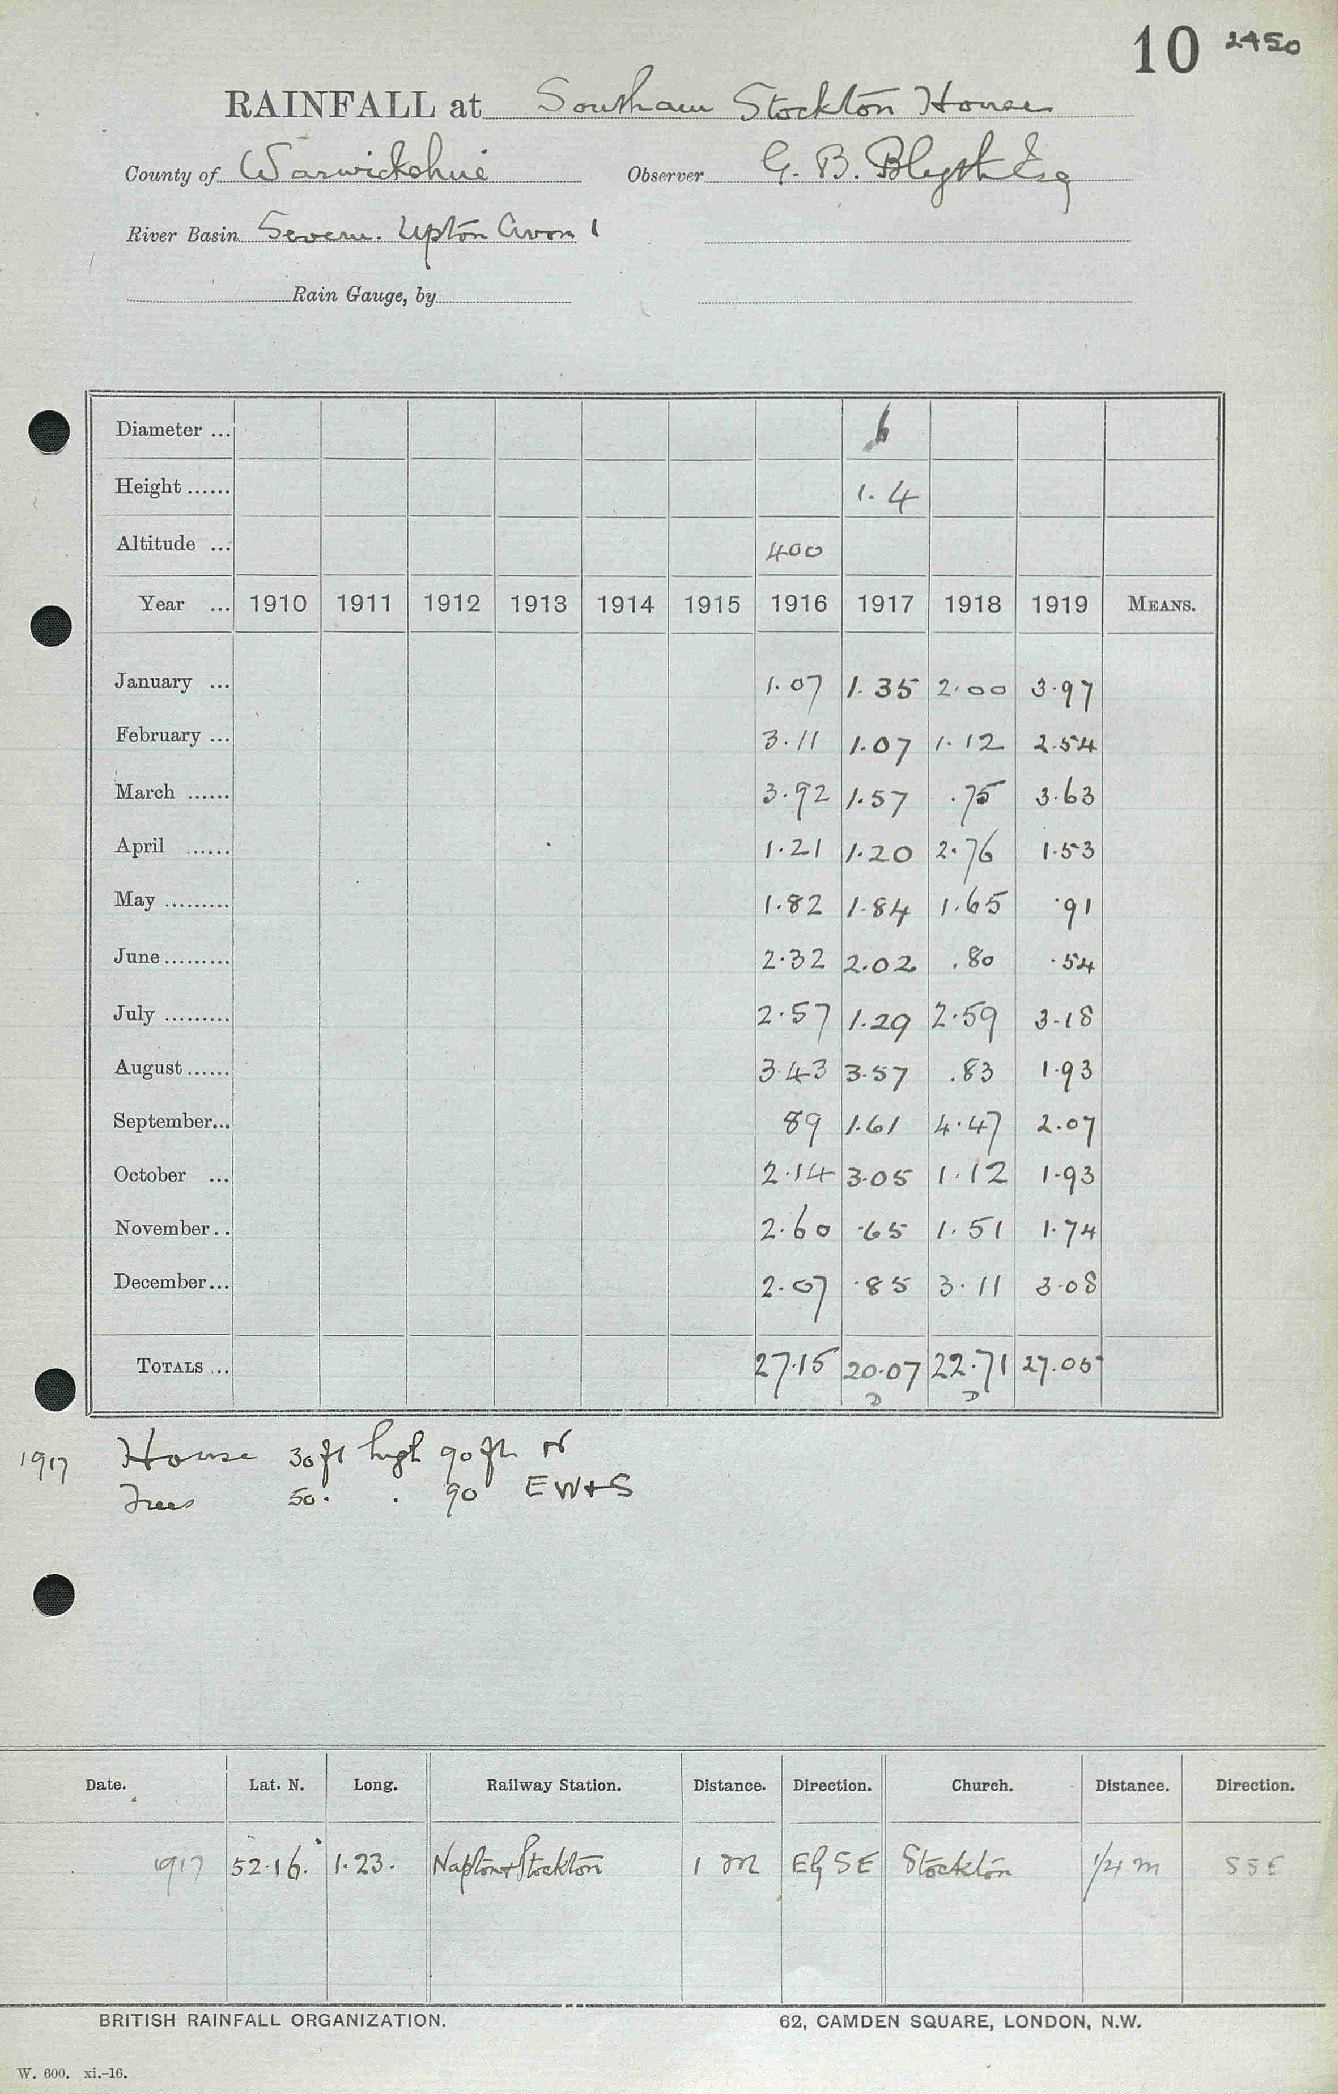 10 2450
RAINFALL at Southam Stockton House
County of Warwickshire Observer G. B. Blyth Esq
River Basin Severn. Upton Avon 1
Rain Gauge, by
Diameter ... 6
Height ...... 1.4
Altitude ... 400
Year ... 1910 1911 1912 1913 1914 1915 1916 1917 1918 1919 MEANS.
January ... 1.07 1.35 2.00 3.97
February ... 3.11 1.07 1.12 2.54
March ...... 3.92 1.57 .75 3.63
April ...... 1.21 1.20 2.76 1.53
May ......... 1.82 1.84 1.65 .91
June ......... 2.32 2.02 .80 .54
July ......... 2.57 1.29 2.59 3.18
August ...... 3.43 3.57 .83 1.93
September... 89 1.61 4.47 2.07
October ... 2.14 3.05 1.12 1.93
November.. 2.60 .65 1.51 1.74
December... 2.07 .85 3.11 3.08
TOTALS ... 27.15 20.07 22.71 27.05
D D
1917 House 30ft high 90 ft N
Trees 50. . 90 E W + S
Date. Lat. N. Long. Railway Station. Distance. Direction. Church. Distance. Direction.
1917 52.16. 1.23. Napton & Stockton 1 m E by S E Stockton 1/4 m S S E
BRITISH RAINFALL ORGANIZATION. 62, CAMDEN SQUARE, LONDON, N.W.
W. 600. xi.-16.